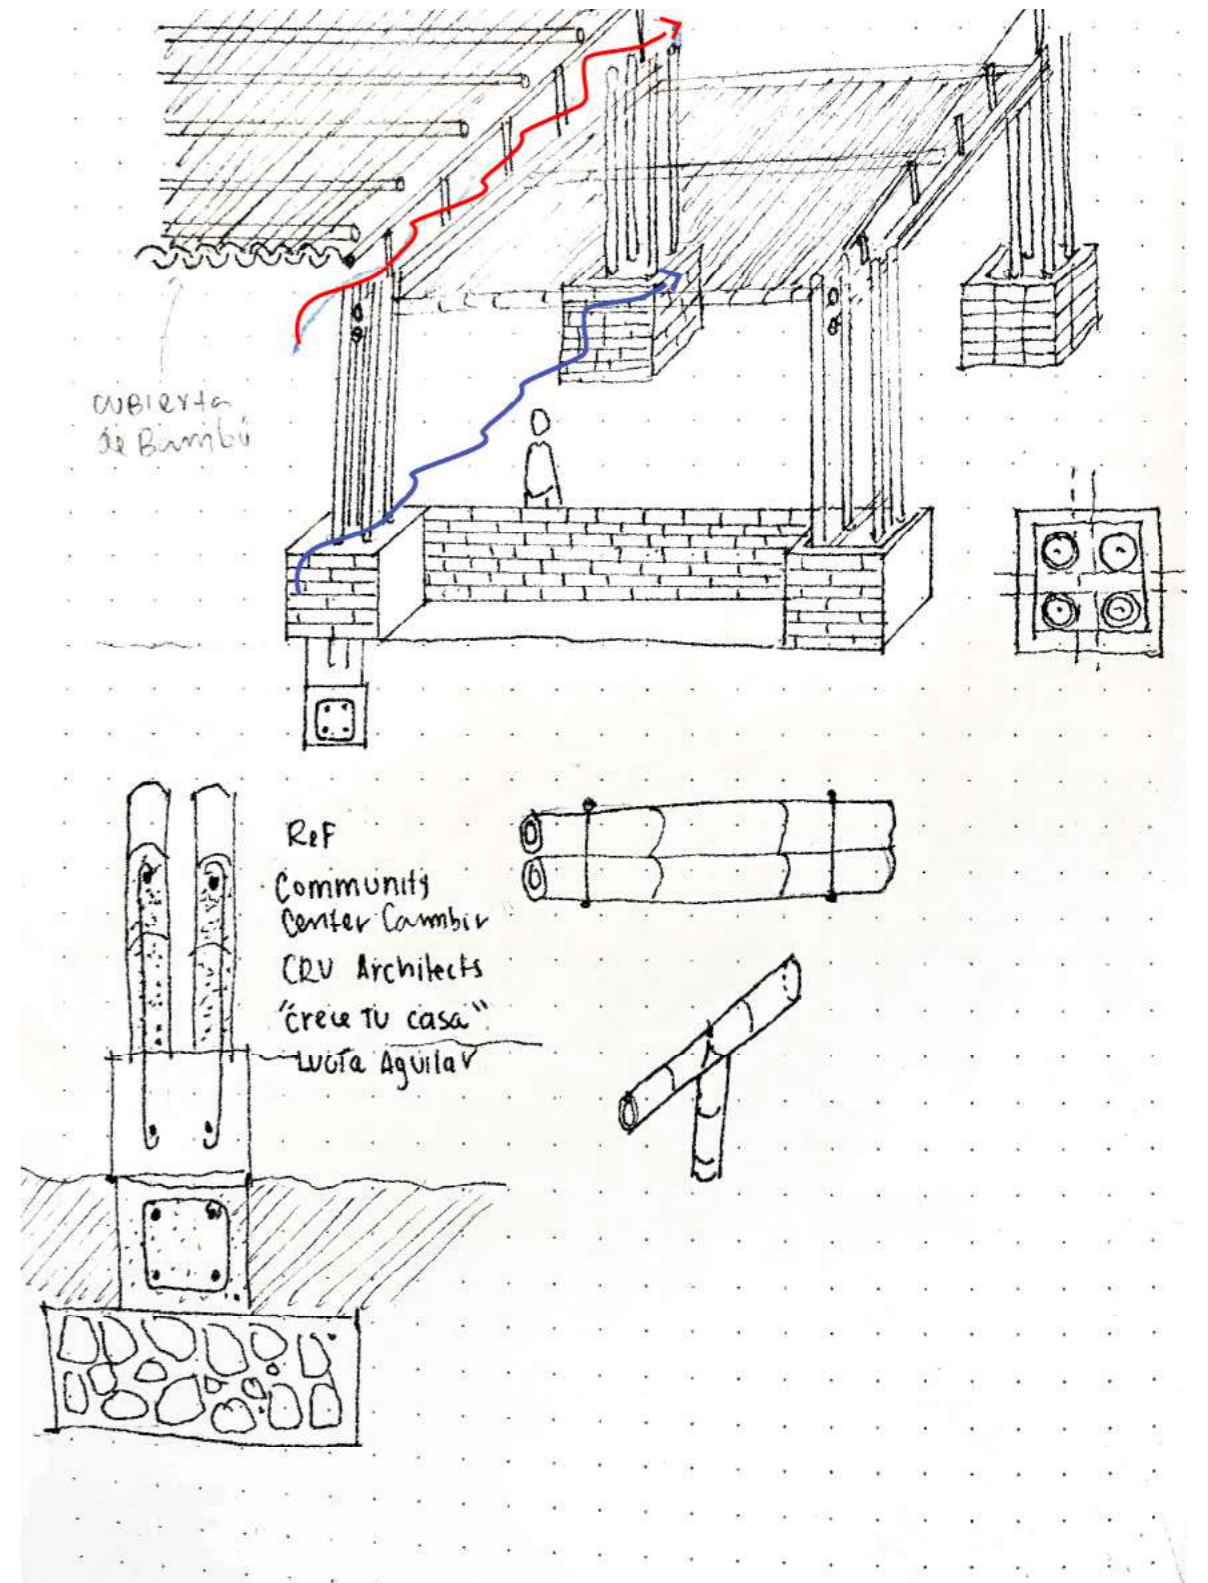 cubierta
de Bambú
Ref
Community
Center Cambir
CRU Architects
"crece Tu casa"
Lucía Aguilar